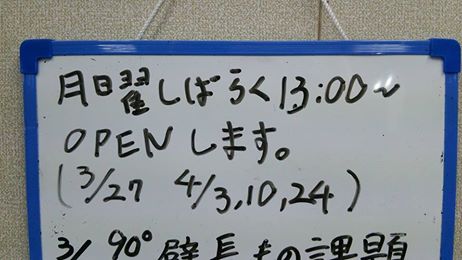 月曜しばらく13:00~
OPENします。
(3/27 4/3,10,24)
3/ 90°壁長もの課題